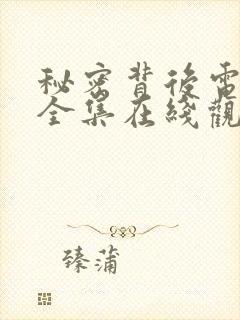 秘密背後電
全集在綫觀
臻蒲